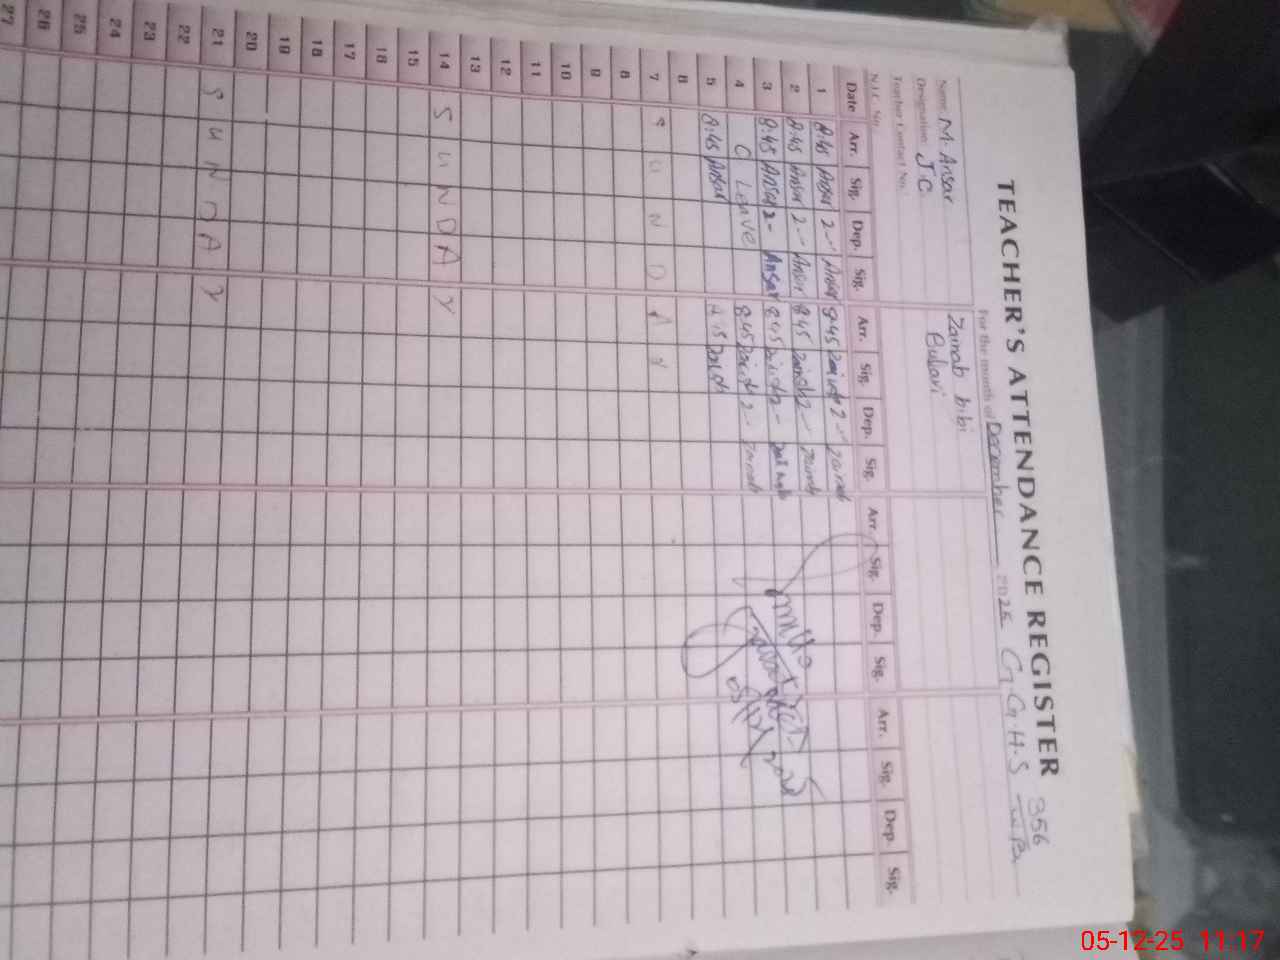 TEACHER'S ATTENDANCE REGISTER 356
For the month of December 2025 G.G.H.S W.B
Name M. Ansar Zainab bibi
Designation J.C Bukari
Teacher Contact No.
N.I.C. No.
Date Arr. Sig. Dep. Sig. Arr. Sig. Dep. Sig. Arr. Sig. Dep. Sig. Arr. Sig. Dep. Sig.
1 8:45 Ansar 2 Ansar 8:45 Zainab 2 Zainab
2 8:45 Ansar 2 Ansar 8:45 Zainab 2 Zainab
3 8:45 Ansar 2 Ansar 8:45 Zainab 2 Zainab
4 C Leave 8:45 Zainab 2 Zainab
5 8:45 Ansar Zainab
6
7 SUNDAY
8
9
10
11
12
13
14 SUNDAY
15
16
17
18
19
20
21 SUNDAY
22
23
24
25
26
27
05-12-25 11:17